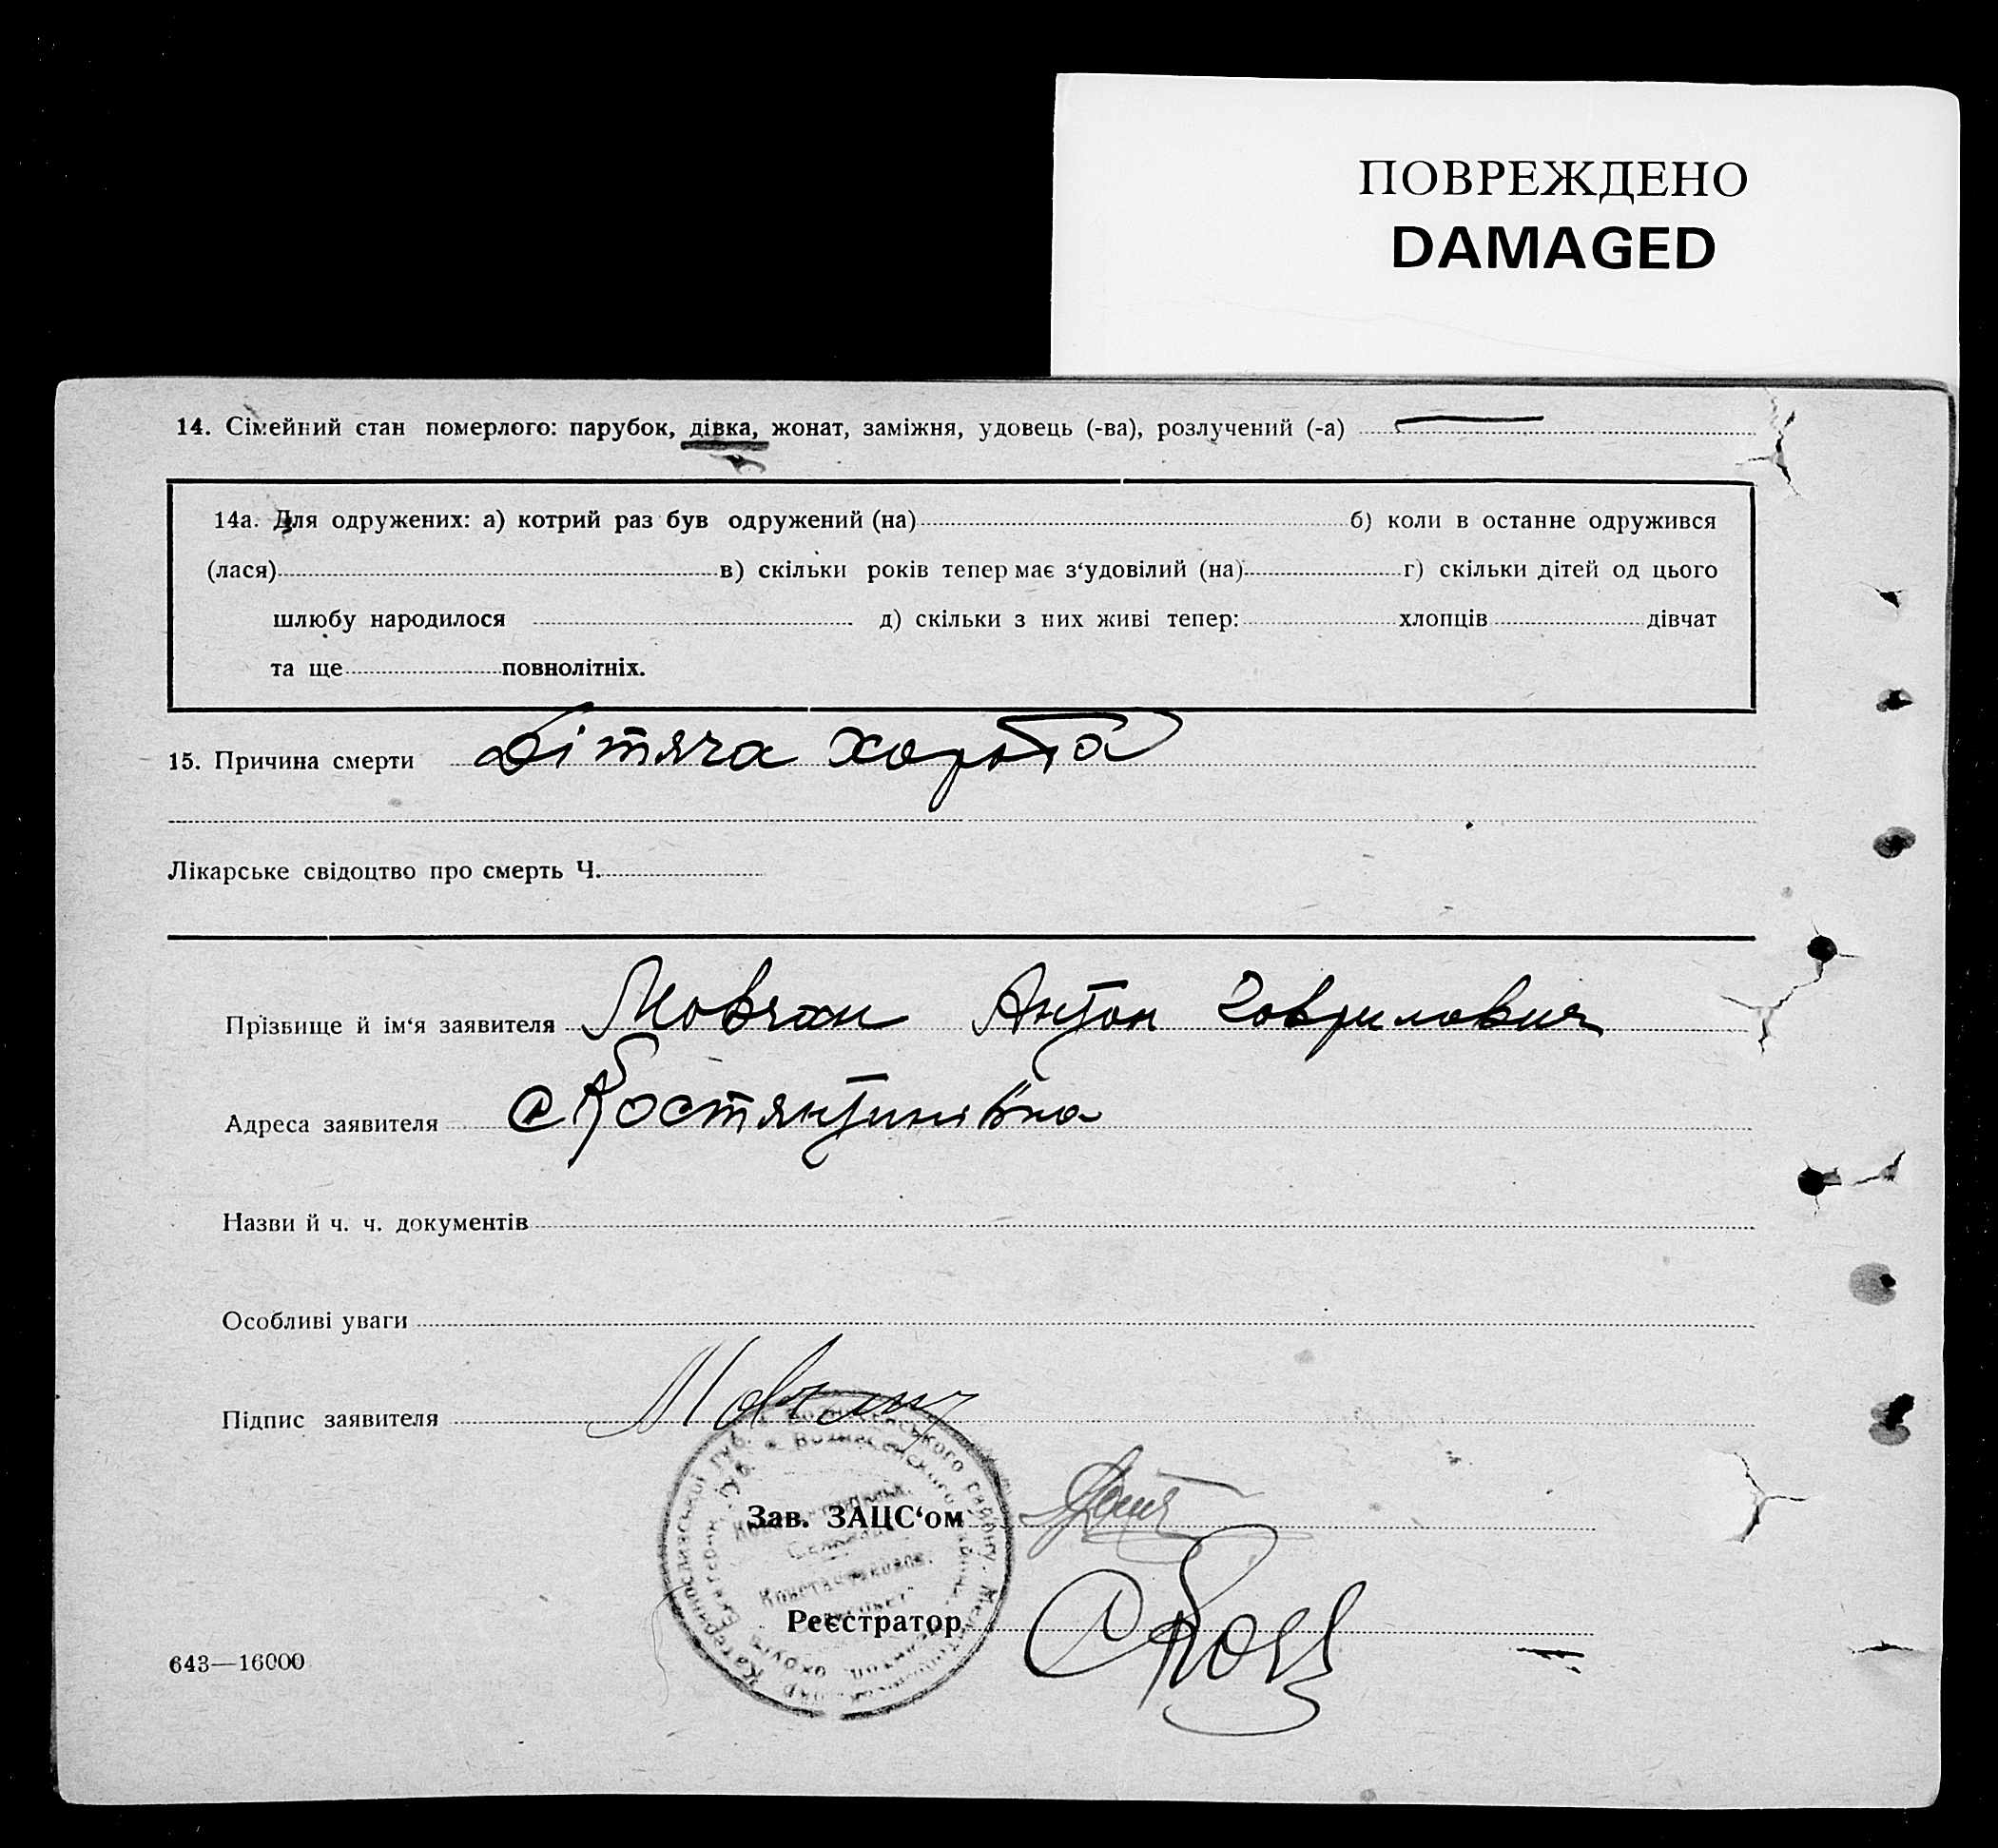 ПОВРЕЖДЕНО
DAMAGED
14. Сімейний стан померлого: парубок, дівка, жонат, заміжня, удовець (-ва), розлучений (-а)
14а. Для одружених: а) котрий раз був одружений (на) б) коли в останнє одружився
(лася) в) скільки років тепер має з‘удовілий (на) г) скільки дітей од цього
шлюбу народилося д) скільки з них живі тепер: хлопців дівчат
та ще повнолітніх.
15. Причина смерти Дітяча хороба
Лікарське свідоцтво про смерть Ч.
Прізвище й ім‘я заявителя Мовчан Антон Гаврилович
Адреса заявителя с Костянтинівка
Назви й ч. ч. документів
Особливі уваги
Підпис заявителя Мовчан
Зав. ЗАЦС‘ом
Реєстратор
643—16000